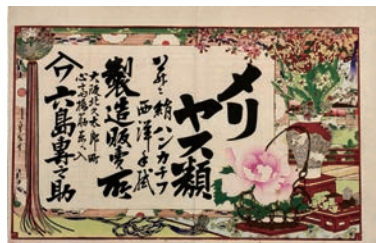 メリ
ヤス類
並ニ絹ハンカチフ
西洋手拭
製造販賣所
大阪北久太郎町
心斎橋筋東ヘ入
六島專之助